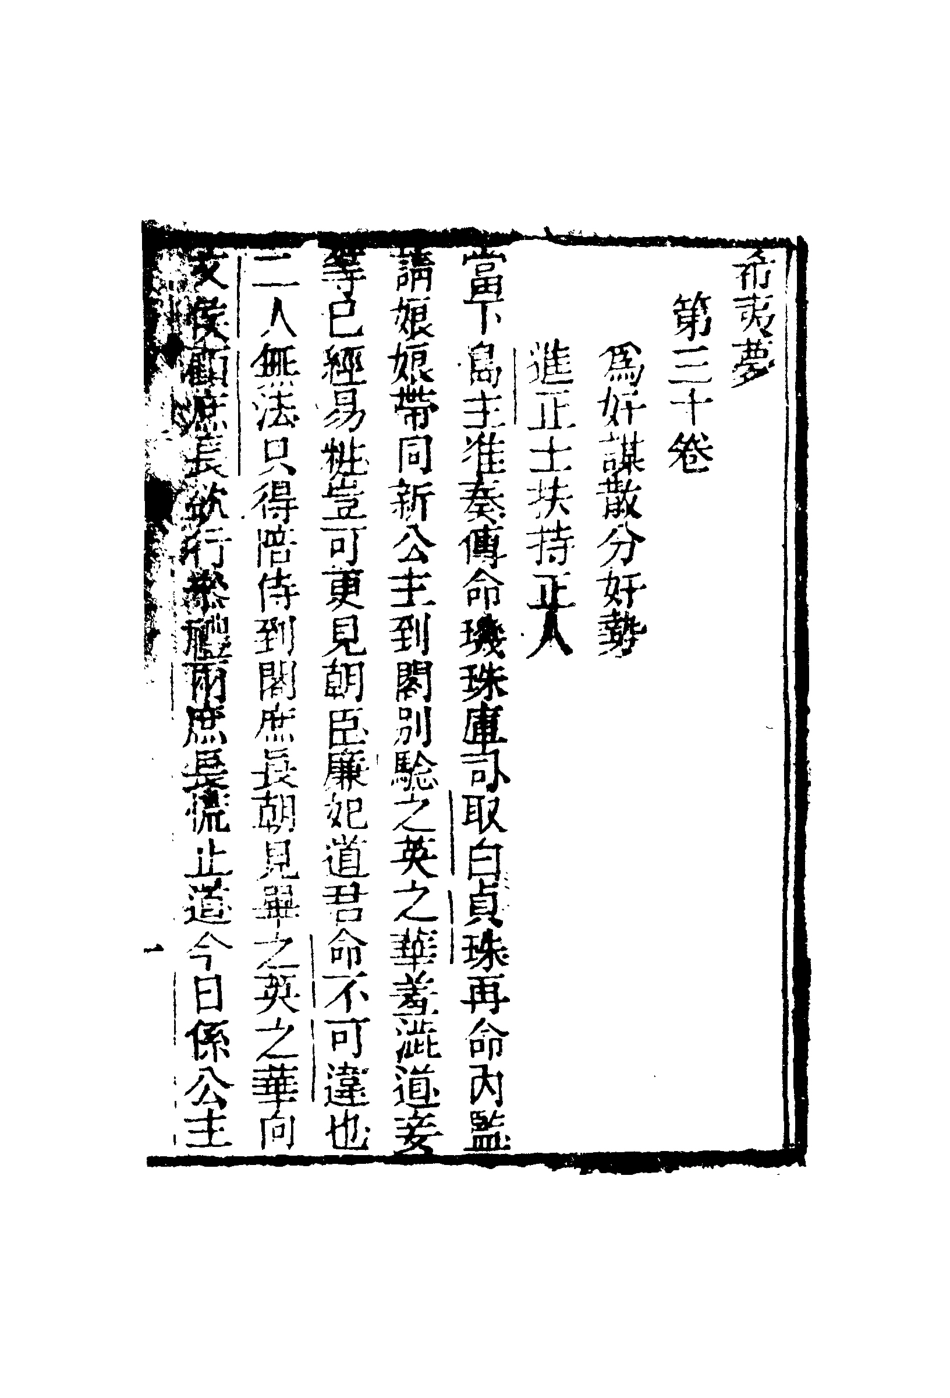 希夷夢
第三十卷
爲奸謀散分奸勢
進正士扶持正人
當下島主准奏傳命璣珠庫司取白貞珠再命內監
請娘娘帶同新公主到閣別驗之英之華羞澁道妾
等已經易粧豈可更見朝臣廉妃道君命不可違也
二人無法只得陪侍到閣庶長朝見畢之英之華向
文侯顧庶長欲行參禮兩庶長慌止道今日係公主
一